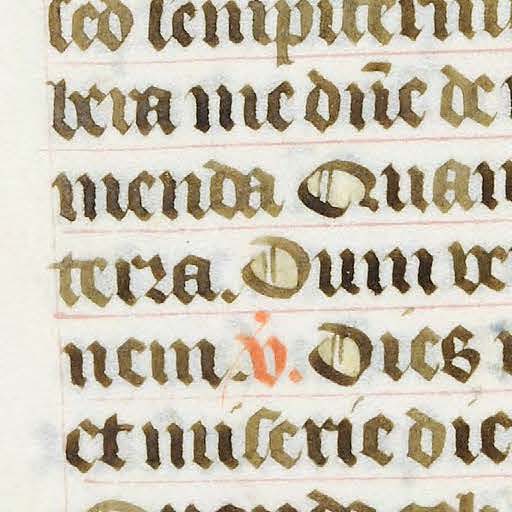 sed sempitern
bera me dñe de
menda Quan
terra. Dum ve
nem. v. Dies
et miserie die